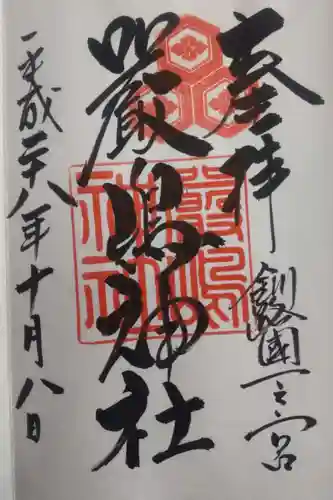 奉拝
釧路國一之宮
嚴島神社
嚴嶋
神社
平成二十八年十月八日